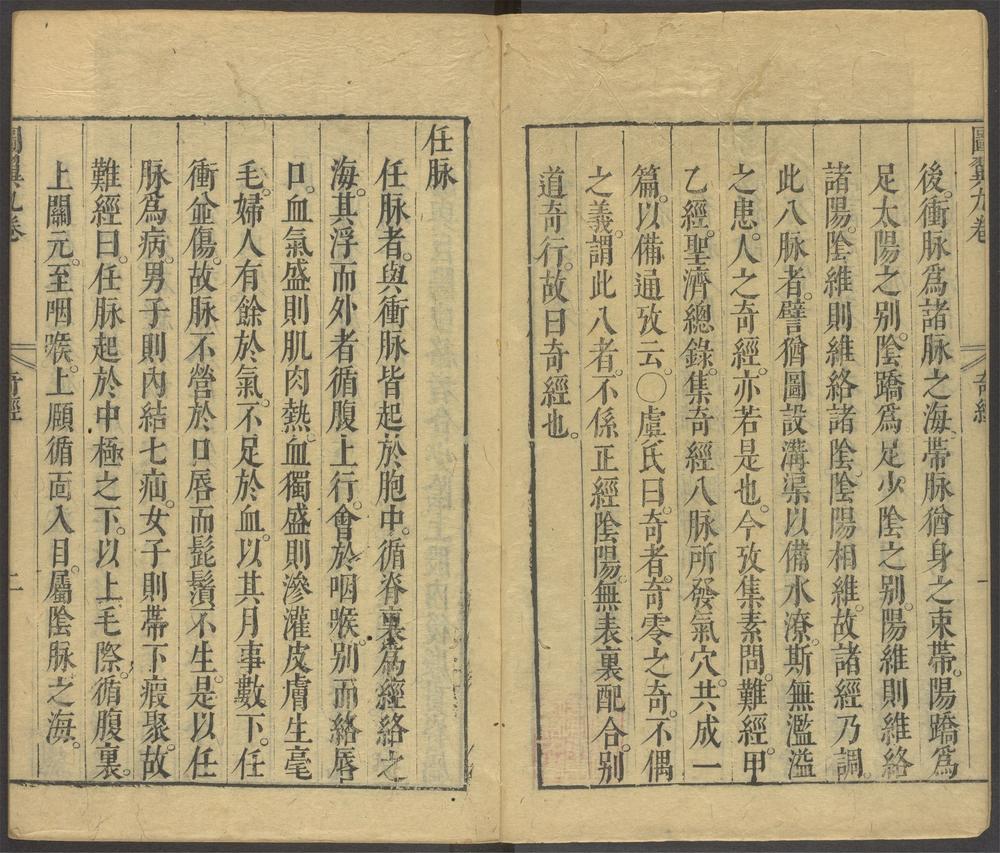 圖翼九卷
奇經
一
後。衝脉爲諸脉之海。帶脉猶身之束帶。陽蹻爲
足太陽之别。陰蹻爲足少陰之别。陽維則維絡
諸陽。陰維則維絡諸陰。陰陽相維。故諸經乃調。
此八脉者。譬猶圖設溝渠以備水潦。斯無濫溢
之患。人之奇經。亦若是也。今攷集素問。難經。甲
乙經。聖濟總錄。集奇經八脉所發氣穴。共成一
篇。以備通攷云。○虞氏曰。奇者。奇零之奇。不偶
之義。謂此八者。不係正經陰陽。無表裏配合。别
道奇行。故曰奇經也。
任脉
任脉者。與衝脉皆起於胞中。循脊裏。爲經絡之
海。其浮而外者循腹上行。會於咽喉。别而絡唇
口。血氣盛則肌肉熱。血獨盛則滲灌皮膚生毫
毛。婦人有餘於氣。不足於血。以其月事數下。任
衝並傷。故脉不營於口唇而髭鬚不生。是以任
脉爲病。男子則内結七疝。女子則帶下瘕聚。故
難經曰。任脉起於中極之下。以上毛際。循腹裏。
上關元。至咽喉。上頤循面入目。屬陰脉之海。
圖翼九卷
奇經
二